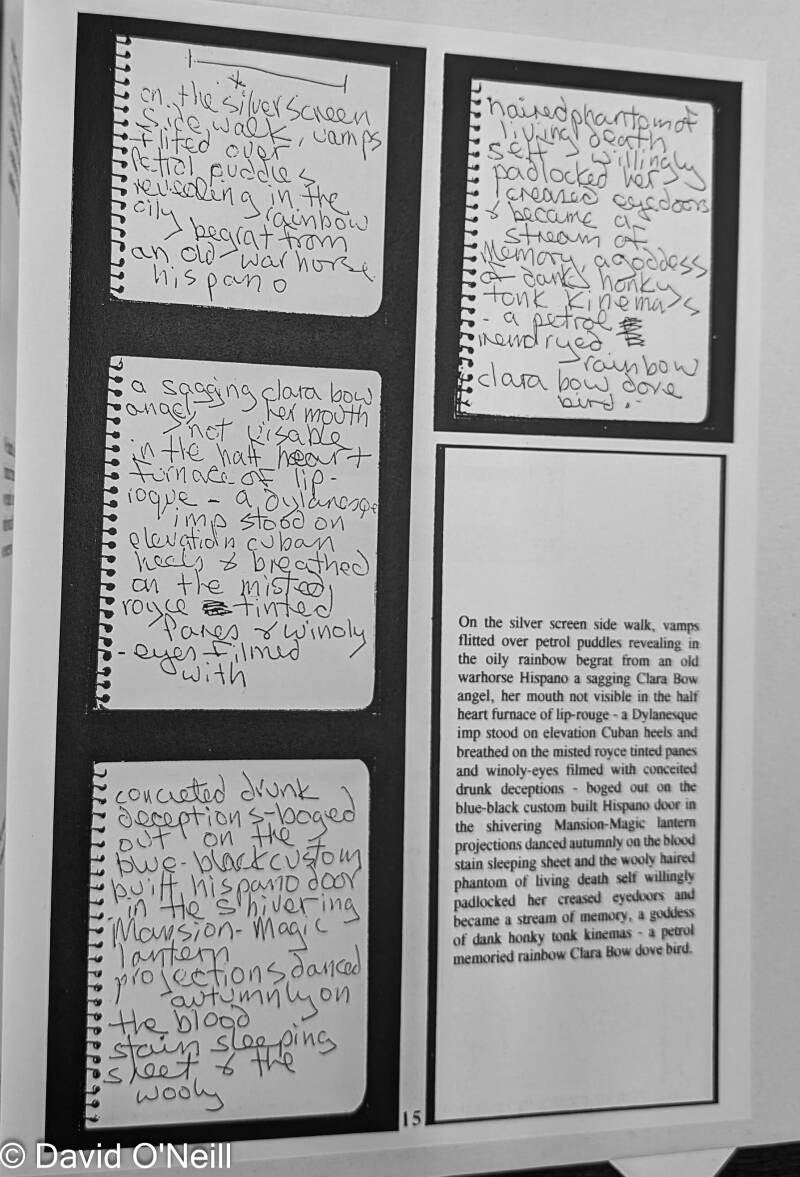 on the silverscreen
side walk, vamps
flited over
petrol puddles
revealing in the
oily rainbow
begrat from
an old warhorse
hispano
a sagging clara bow
angel, her mouth
not visable
in the half heart
furnace of lip-
roque - a dylanesque
imp stood on
elevation cuban
heels & breathed
on the misted
royce tinted
panes & winoly
- eyes filmed
with
concieted drunk
deceptions-boged
out on the
blue-black custom
built hispano door
in the shivering
Mansion-Magic
lantern
projections danced
autumnly on
the blood
stain sleeping
sheet & the
wooly
haired phantom of
living death
self willingly
padlocked her
creased eyedoors
& became a
stream of
Memory, a goddess
of dank honky
tonk kinemas
- a petrol
memoryed
rainbow
clara bow dove
bird.
On the silver screen side walk, vamps
flitted over petrol puddles revealing in
the oily rainbow begrat from an old
warhorse Hispano a sagging Clara Bow
angel, her mouth not visible in the half
heart furnace of lip-rouge - a Dylanesque
imp stood on elevation Cuban heels and
breathed on the misted royce tinted panes
and winoly-eyes filmed with conceited
drunk deceptions - boged out on the
blue-black custom built Hispano door in
the shivering Mansion-Magic lantern
projections danced autumnly on the blood
stain sleeping sheet and the wooly haired
phantom of living death self willingly
padlocked her creased eyedoors and
became a stream of memory, a goddess
of dank honky tonk kinemas - a petrol
memoried rainbow Clara Bow dove bird.
15
© David O'Neill